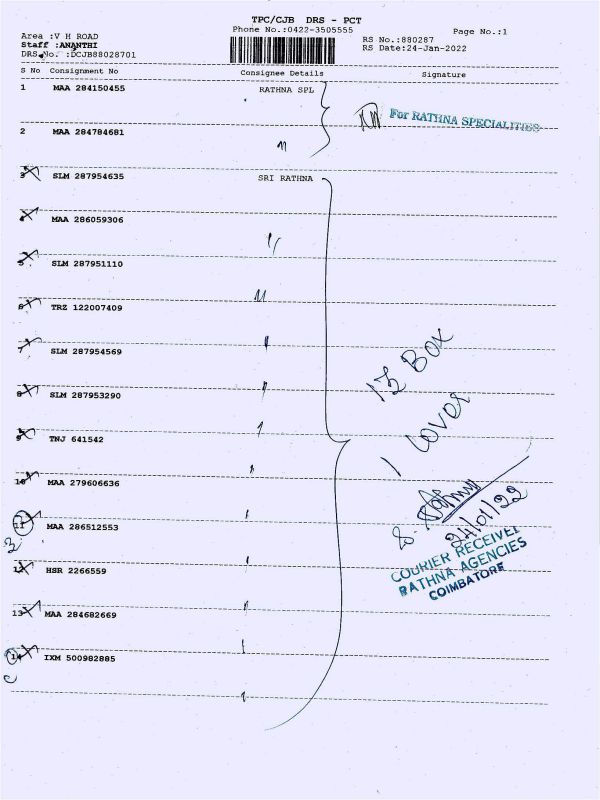 TPC/CJB DRS - PCT
Area :V H ROAD
Phone No.:0422-3505555
Page No.:1
Staff :ANANTHI
RS No.:880287
DRS No. :DCJB88028701
RS Date:24-Jan-2022
S No Consignment No Consignee Details Signature
1 MAA 284150455 RATHNA SPL
For RATHNA SPECIALITIES
2 MAA 284784681
3 SLM 287954635 SRI RATHNA
4 MAA 286059306
5 SLM 287951110
6 TRZ 122007409
7 SLM 287954569
8 SLM 287953290
13 Box
9 TNJ 641542
1 Cover
10 MAA 279606636
11 MAA 286512553
3
24/01/22
COURIER RECEIVED
RATHNA AGENCIES
COIMBATORE
12 HSR 2266559
13 MAA 284682669
14 IXM 500982885
C